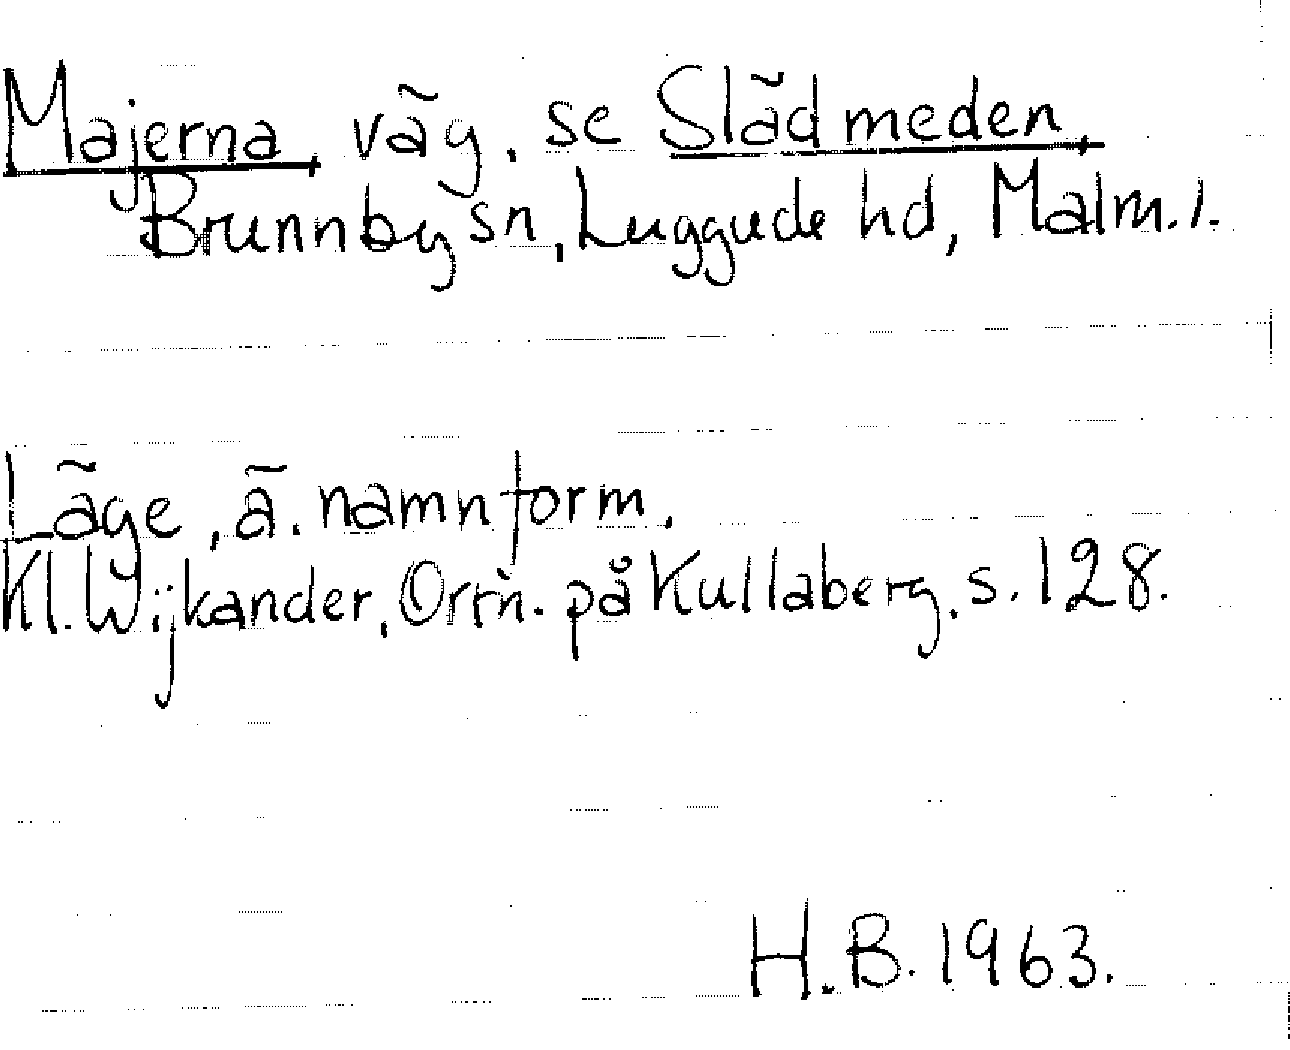 Majerna väg, se Slädmeden,
Brunnby sn, Luggude hd, Malm. l.
Läge, ä. namnform.
Kl. Wijkander, Ortn. på Kullaberg, s. 128.
H.B. 1963.